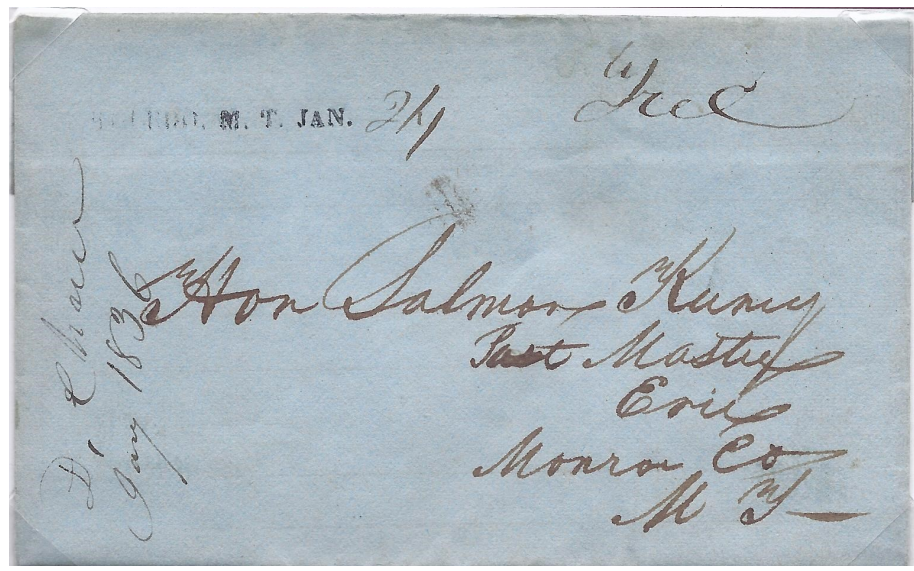 TOLEDO, M. T. JAN. 24
Free
Hon Salmon Keeney
Post Master
Erie
Monroe Co
M T
D. Chase
Jany 1836